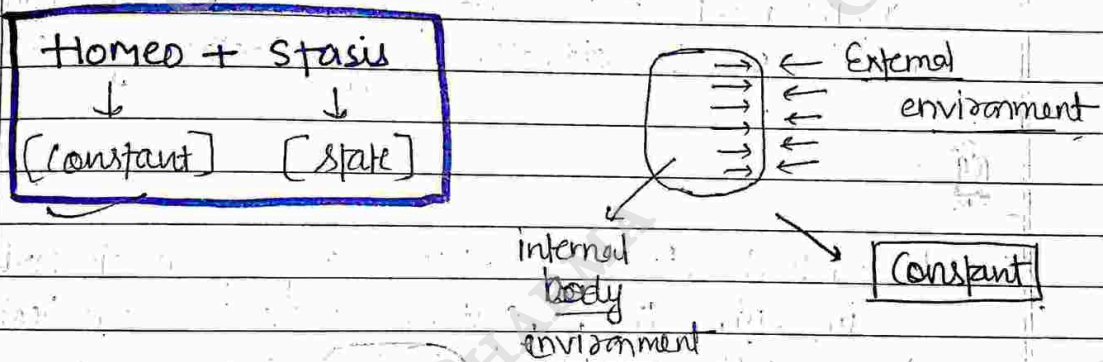 Homeo + Stasis
↓ ↓
[Constant] [State]
← External
environment
internal
body
environment
Constant